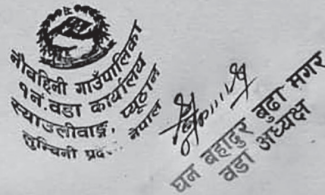 नौवहिनी गाउँपालिका
१नं. वडा कार्यालय
स्याउलीवाङ्ग, प्यूठान
लुम्बिनी प्रदेश नेपाल
घन बहादुर बुढा मगर
वडा अध्यक्ष